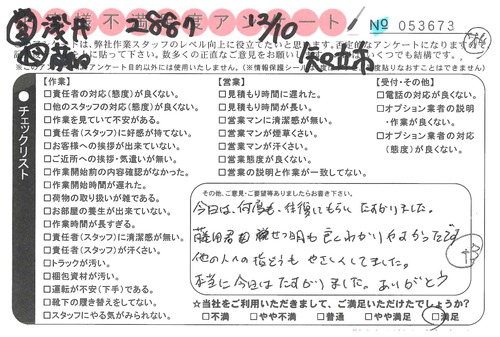 客様不満足度アンケート
2887
12/10
No 053673
知立市
、弊社作業スタッフのレベル向上に役立てたいと思います。
に貼って下さい。数多くの正直なご意見をお願い
※このアンケート目的以外には使用いたしません。
チェックリスト
【作業】
□責任者の対応(態度)が良くない。
□他のスタッフの対応(態度)が良くない。
□作業を見ていて不安がある。
□責任者(スタッフ)に好感が持てない。
□お客様への挨拶が出来ていない。
□ご近所への挨拶・気遣いが無い。
□作業開始前の内容確認がなかった。
□作業開始時間が遅れた。
□荷物の取り扱いが雑である。
□お部屋の養生が出来ていない。
□作業時間が長すぎる。
□責任者(スタッフ)に清潔感が無い。
□責任者(スタッフ)が汗くさい。
□トラックが汚い。
□梱包資材が汚い。
□運転が不安(下手)である。
□靴下の履き替えをしてない。
□スタッフにやる気がみられない。
【営業】
□見積もり時間に遅れた。
□見積もり時間が長い。
□営業マンに清潔感が無い。
□営業マンが煙草くさい。
□営業マンが汗くさい。
□営業態度が良くない。
□営業の説明と作業が一致してない。
【受付・その他】
□電話の対応が良くない。
□オプション業者の説明・作業が良くない。
□オプション業者の対応(態度)が良くない。
その他、ご意見・ご要望等ありましたらお書き下さい。
今日は、何度も、往復してもらい たすかりました。
藤田君 説明も良くわかりやすかったです
他の人への指どうも やさしくしてました。
本当に今日はたすかりました。ありがとう
☆当社をご利用いただきまして、ご満足いただけたでしょうか?
□不満 □やや不満 □普通 □やや満足 □満足